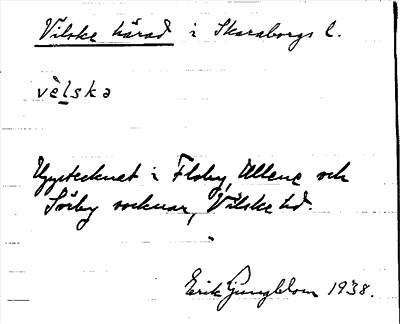 Vilske härad i Skaraborgs l.
vèlska
Upptecknat i Floby, Ullene och
Sörby socknar, Vilske hd.
Erik Ljungblom 1938.